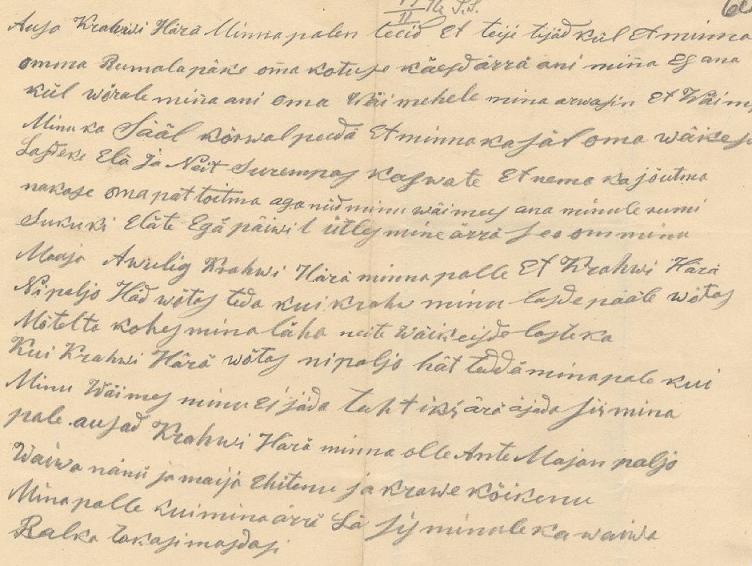 Auso Krahwi Härä Minna palen teeid Et teiji tijäd kül Et minna
omma Rumala päke oma kotuse käest ärrä ani mina Es ana
kül wõrale mina ani oma Wäi mehele mina arwasin Et Wäim
Minu ka Sääl kõrwal peedä Et minna ka sät oma wäikesi
Lasdeke Elä Ja Neit Surempas kaswate Et nema ka jõutma
nakase oma pät toitma aga nüid minu wäimees ana minule rumi
Sukuki Eläte Egä päiwil ütles mine ärrä Seo om minu
Maaja Awulig Krahwi Härä minna palle Et Krahwi Härä
Ni paljo Häd wõtas teda kui krahw minu lasde pääle wõtas
Mõtelta kohes mina läha neite wäikeisde lasteka
Kui Krahwi Härä wõtas ni paljo hät teddä mina pale kui
Minu Wäimes minu Ei jäda taht iks ärä äjada sis mina
pale ausad Krahwi Härä minna olle Ante Majan paljo
Waiwa nännü ja maija Ehitenu ja krawe kõikenu
Mina palle kui mina ärrä Lä sis minule ka waiwa
Palka takasi masdasi